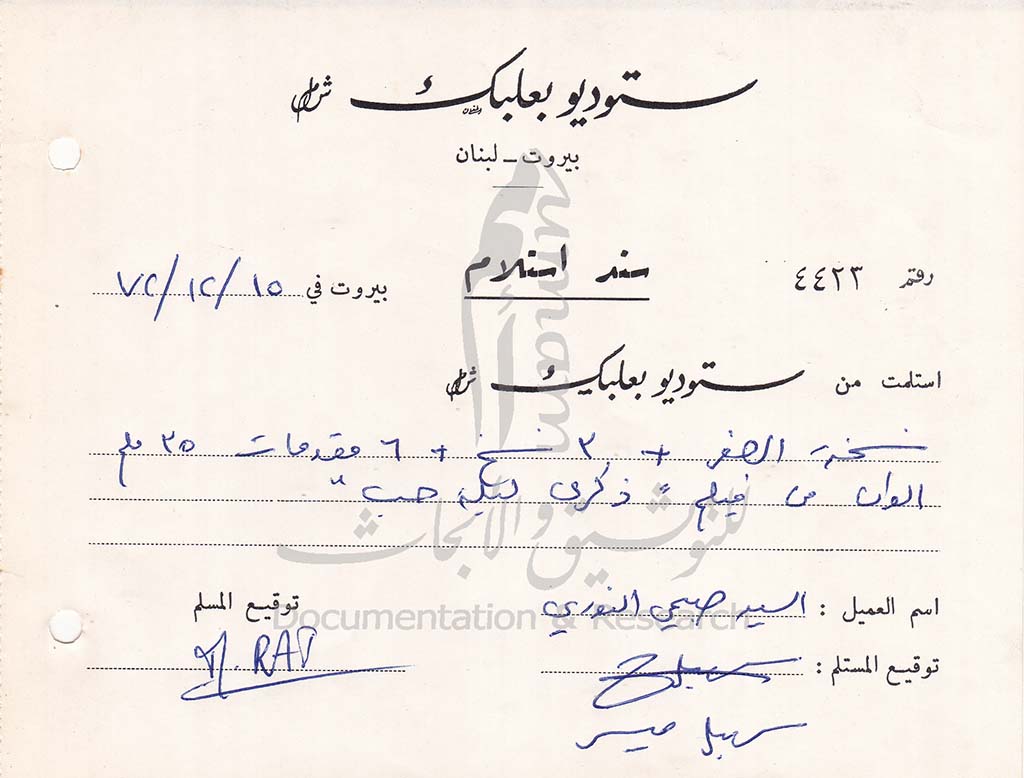 ستوديو بعلبك ش.م.ل
بيروت ـ لبنان
رقم ٤٤٢٣
سند استلام
بيروت في ١٥/١٢/٧٢
استلمت من ستوديو بعلبك ش.م.ل
نسخة الصفر + ٣ نسخ + ٦ مقدمات ٣٥ ملم
الوان من فيلم " ذكرى ليلة حب "
اسم العميل : السيد صبحي النوري
توقيع المسلم
M. RAD
توقيع المستلم :
سهيل
umam
للتوثيق والأبحاث
Documentation & Research